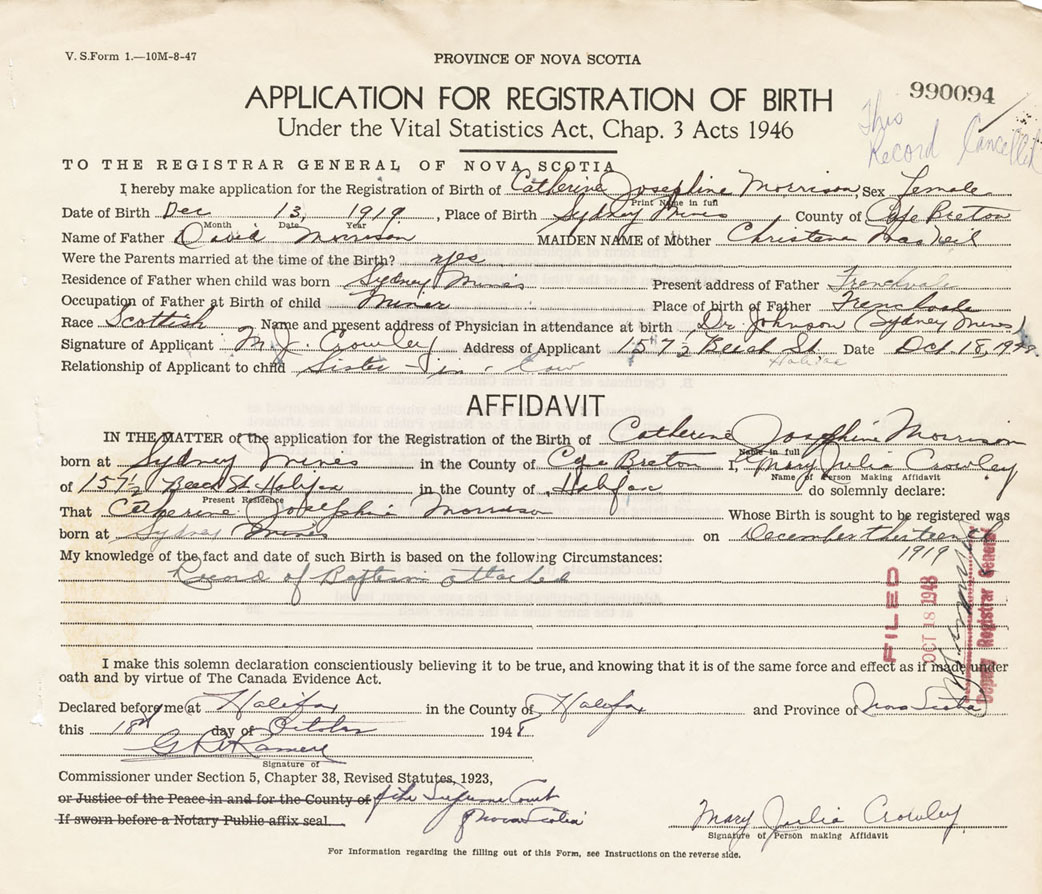 V. S.Form 1.—10M-8-47
PROVINCE OF NOVA SCOTIA
990094
APPLICATION FOR REGISTRATION OF BIRTH
This Record Cancelled
Under the Vital Statistics Act, Chap. 3 Acts 1946
TO THE REGISTRAR GENERAL OF NOVA SCOTIA
I hereby make application for the Registration of Birth of Catherine Josephine Morrison, Sex Female
Print Name in full
Date of Birth Dec 13, 1919, Place of Birth Sydney Mines County of Cape Breton
Month Date Year
Name of Father David Morrison MAIDEN NAME of Mother Christena MacNeil
Were the Parents married at the time of the Birth? yes
Residence of Father when child was born Sydney Mines Present address of Father Frenchvale
Occupation of Father at Birth of child Miner Place of birth of Father Frenchvale
Race Scottish Name and present address of Physician in attendance at birth Dr. Johnson (Sydney Mines)
Signature of Applicant M. J. Crowley Address of Applicant 157½ Beech St. Halifax Date Oct 18, 1948
Relationship of Applicant to child Sister-in-Law
AFFIDAVIT
IN THE MATTER of the application for the Registration of the Birth of Catherine Josephine Morrison
Name in full
born at Sydney Mines in the County of Cape Breton I, Mary Julia Crowley
Name of Person Making Affidavit
of 157½ Beech St. Halifax in the County of Halifax do solemnly declare:
Present Residence
That Catherine Josephine Morrison Whose Birth is sought to be registered was
born at Sydney Mines on December thirteenth
1919
My knowledge of the fact and date of such Birth is based on the following Circumstances:
Record of Baptism attached
FILED
OCT 18 1948
Deputy Registrar General
I make this solemn declaration conscientiously believing it to be true, and knowing that it is of the same force and effect as if made under
oath and by virtue of The Canada Evidence Act.
Declared before me at Halifax in the County of Halifax and Province of Nova Scotia
this 18th day of October 1948
Signature of
Commissioner under Section 5, Chapter 38, Revised Statutes, 1923,
or Justice of the Peace in and for the County of of the Supreme Court
If sworn before a Notary Public affix seal. of Nova Scotia
Mary Julia Crowley
Signature of Person making Affidavit
For Information regarding the filling out of this Form, see Instructions on the reverse side.